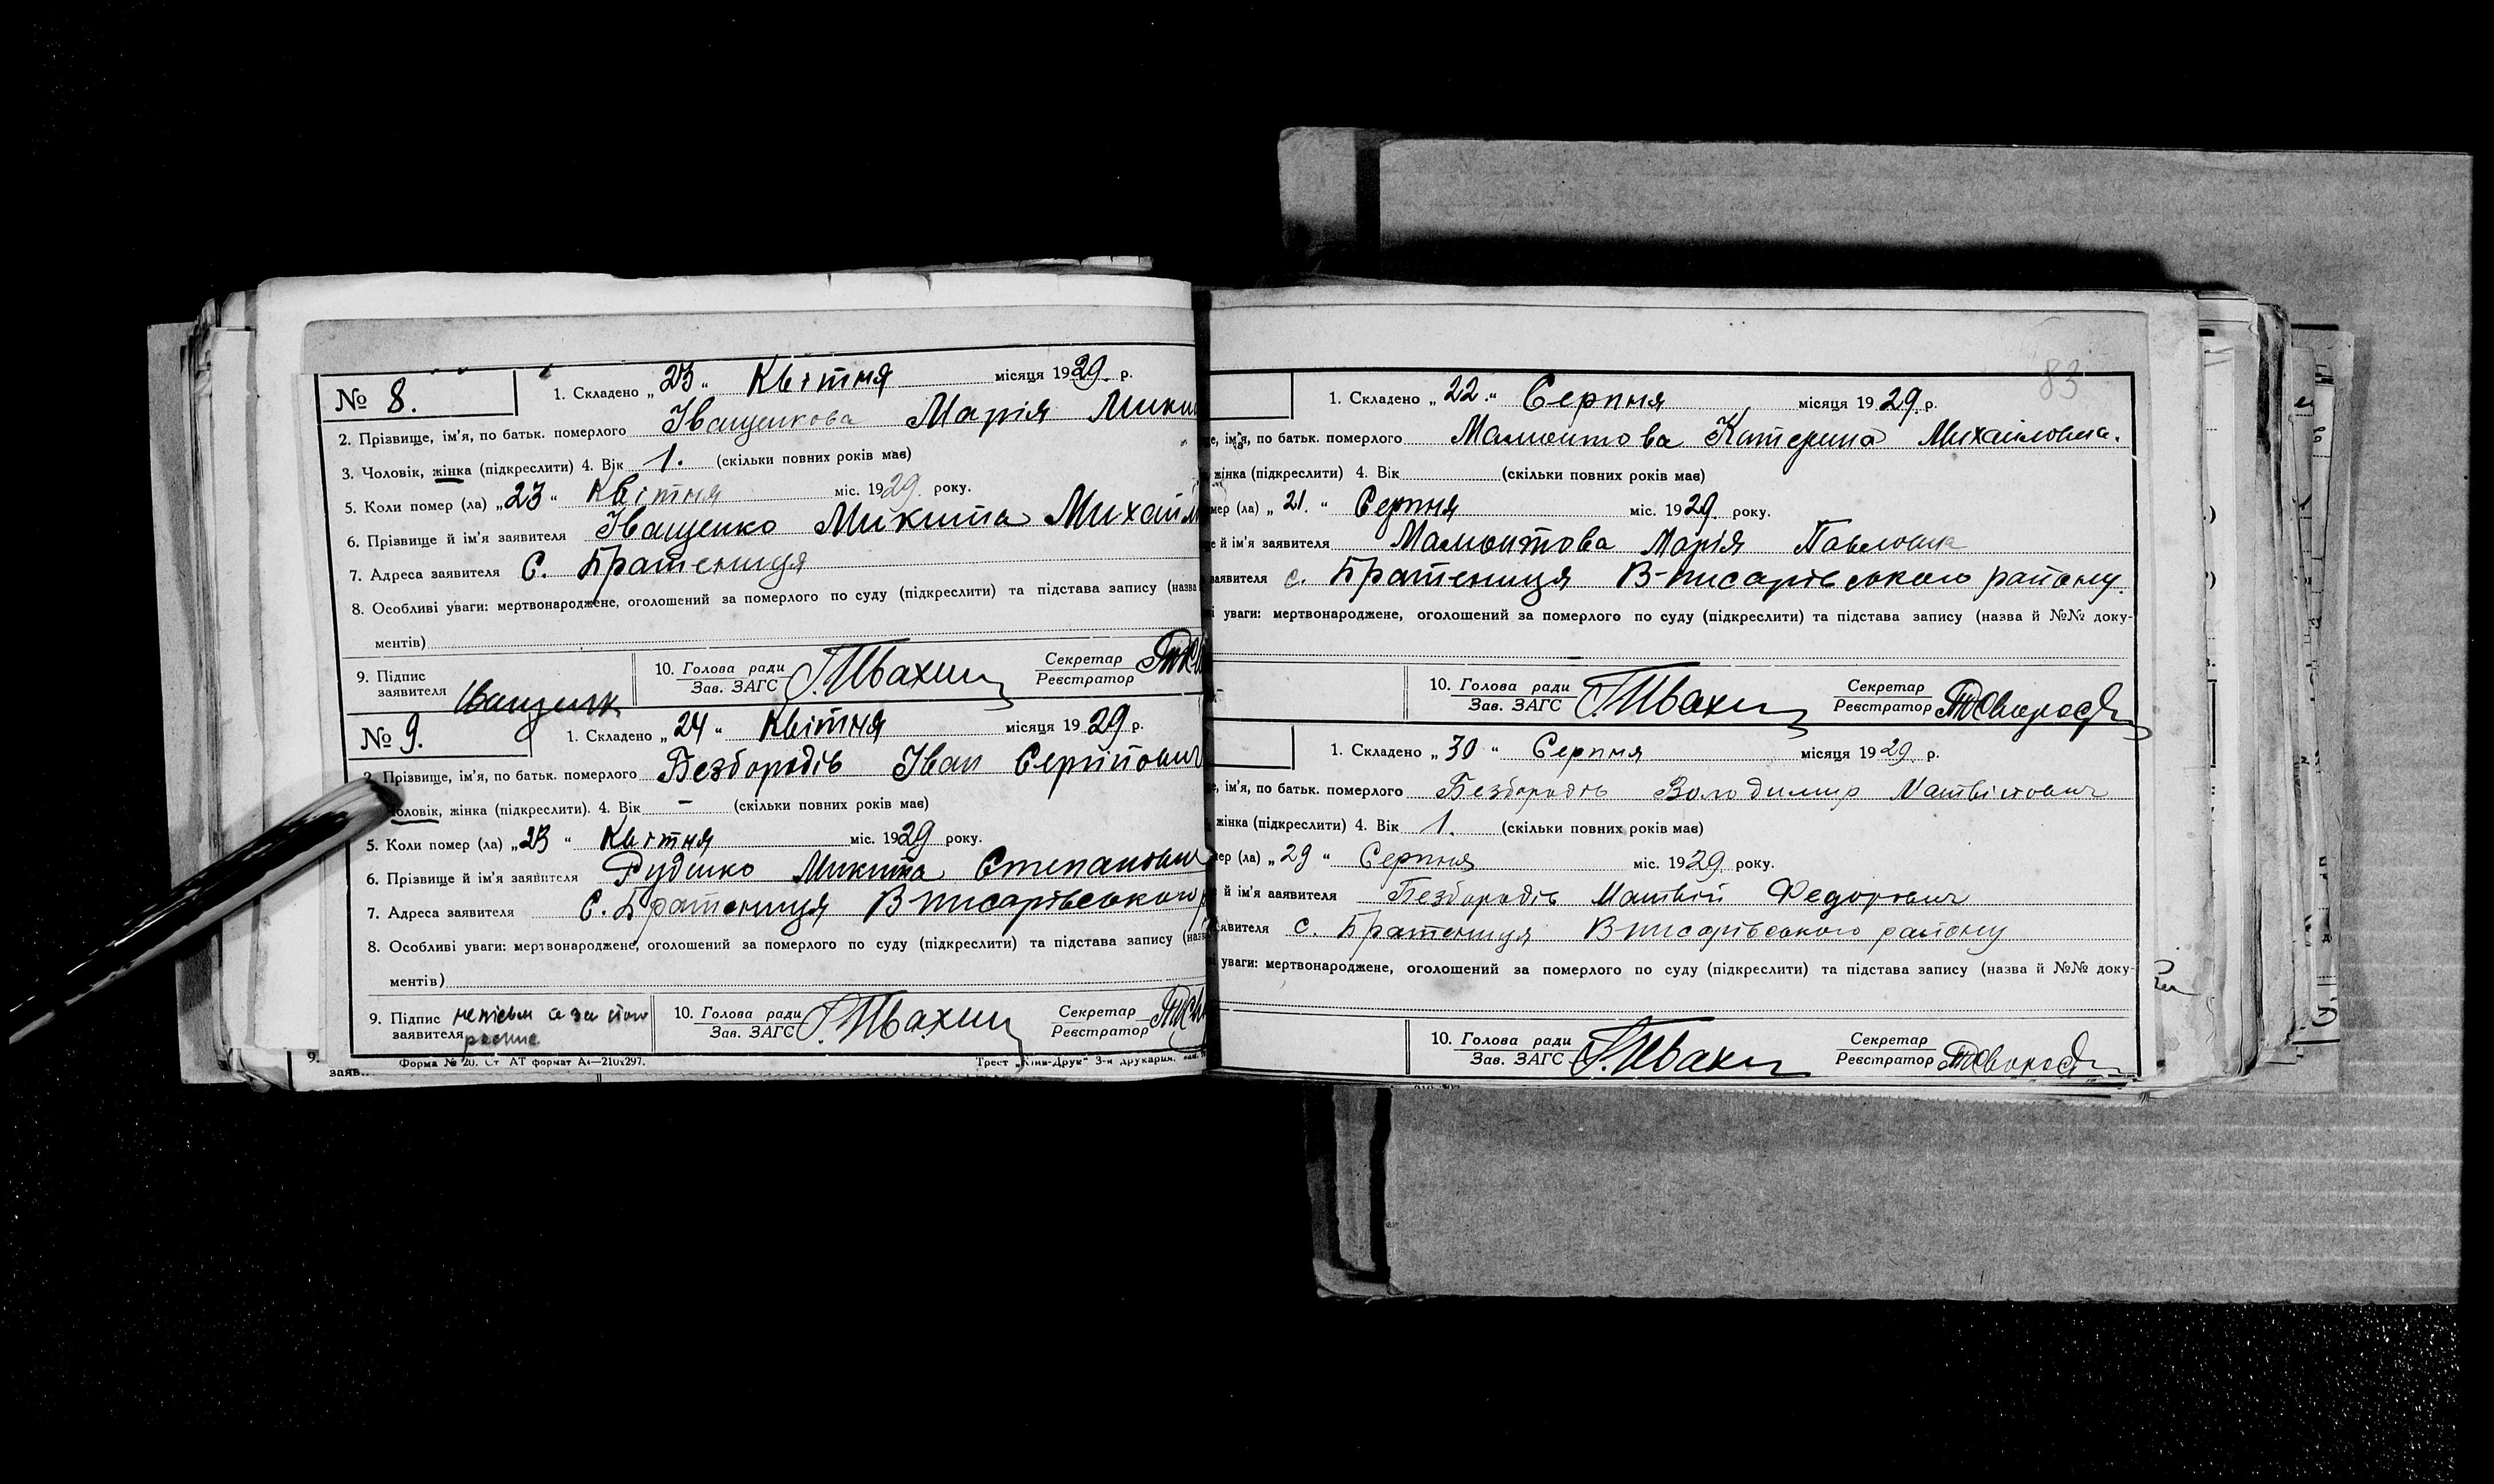 № 8.
1. Складено „23“ Квітня місяця 1929 р.
2. Прізвище, ім'я, по батьк. померлого Іващенкова Марія Мики
3. Чоловік, жінка (підкреслити) 4. Вік 1. (скільки повних років має)
5. Коли помер (ла) „23“ Квітня міс. 1929 року.
6. Прізвище й ім'я заявителя Іващенко Микита Михайл
7. Адреса заявителя С. Братениця
8. Особливі уваги: мертвонароджене, оголошений за померлого по суду (підкреслити) та підстава запису (назва
ментів)
9. Підпис заявителя Іващенк
10. Голова ради Зав. ЗАГС Секретар Реєстратор
№ 9.
1. Складено „24“ Квітня місяця 1929 р.
2. Прізвище, ім'я, по батьк. померлого Безбородів Іван Сергійович
Чоловік, жінка (підкреслити). 4. Вік — (скільки повних років має)
5. Коли помер (ла) „23“ Квітня міс. 1929 року.
6. Прізвище й ім'я заявителя Руденко Микита Степанович
7. Адреса заявителя С. Братениця В писарівського
8. Особливі уваги: мертвонароджене, оголошений за померлого по суду (підкреслити) та підстава запису (назв
ментів)
9. Підпис заявителя
10. Голова ради Зав. ЗАГС Секретар Реєстратор
Форма № 20. Ст АТ формат А4—210х297. Трест „Київ-Друк“ 3-я друкарня.
9.
заяв
83
1. Складено „22“ Серпня місяця 1929 р.
е, ім'я, по батьк. померлого Мамонтова Катерина Михайловна.
жінка (підкреслити) 4. Вік (скільки повних років має)
мер (ла) „21.“ Серпня міс. 1929 року.
е й ім'я заявителя Мамонтова Марія Павловна
заявителя с. Братениця В-писарівського району.
і уваги: мертвонароджене, оголошений за померлого по суду (підкреслити) та підстава запису (назва й №№ доку-
10. Голова ради Зав. ЗАГС Секретар Реєстратор
1. Складено „30“ Серпня місяця 1929 р.
е, ім'я, по батьк. померлого Безбородів Володимир Матвійович
жінка (підкреслити) 4. Вік 1. (скільки повних років має)
мер (ла) „29“ Серпня міс. 1929 року.
й ім'я заявителя Безбородів Матвій Федорович
аявителя с. Братениця В писарівського району
і уваги: мертвонароджене, оголошений за померлого по суду (підкреслити) та підстава запису (назва й №№ доку-
10. Голова ради Зав. ЗАГС Секретар Реєстратор